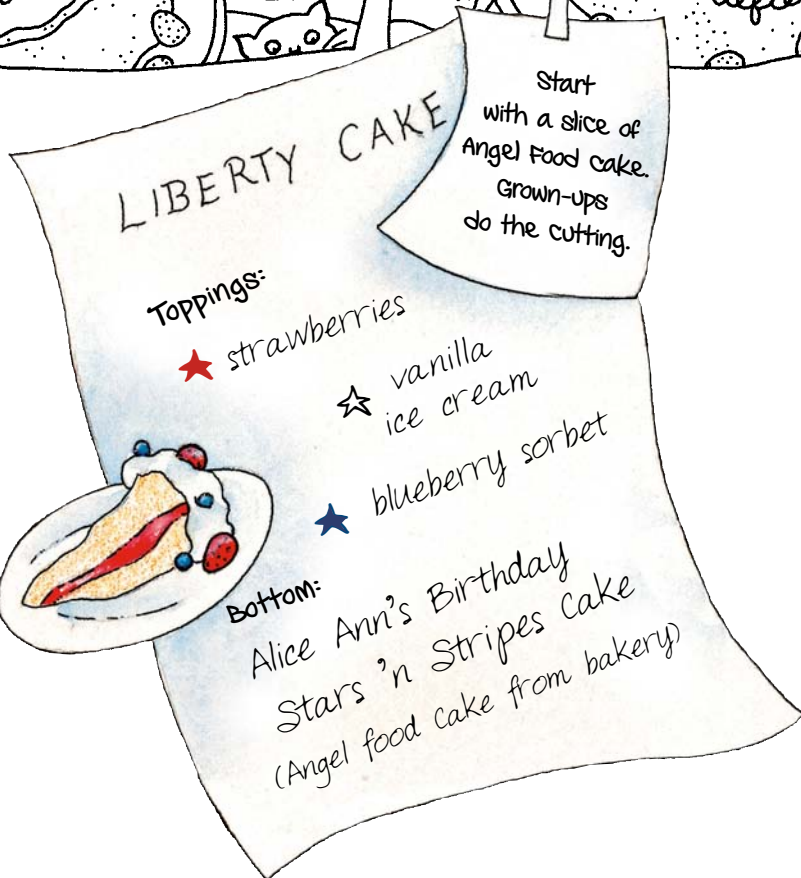 LIBERTY CAKE
Start
with a slice of
Angel Food cake.
Grown-ups
do the cutting.
Toppings:
strawberries
vanilla
ice cream
blueberry sorbet
Bottom:
Alice Ann's Birthday
Stars 'n Stripes Cake
(Angel food cake from bakery)